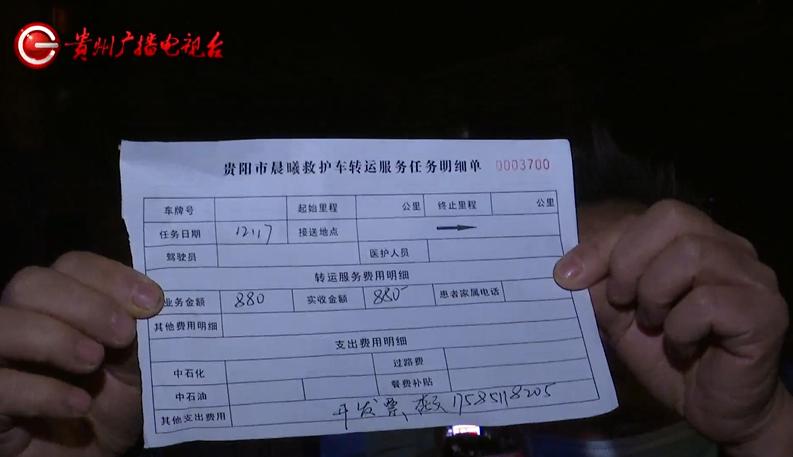 贵州广播电视台
贵阳市晨曦救护车转运服务任务明细单 0003700
车牌号 起始里程 公里 终止里程 公里
任务日期 12.17 接送地点
驾驶员 医护人员
转运服务费用明细
业务金额 880 实收金额 880 患者家属电话
其他费用明细
支出费用明细
中石化 过路费
中石油 餐费补贴
其他支出费用 开发票